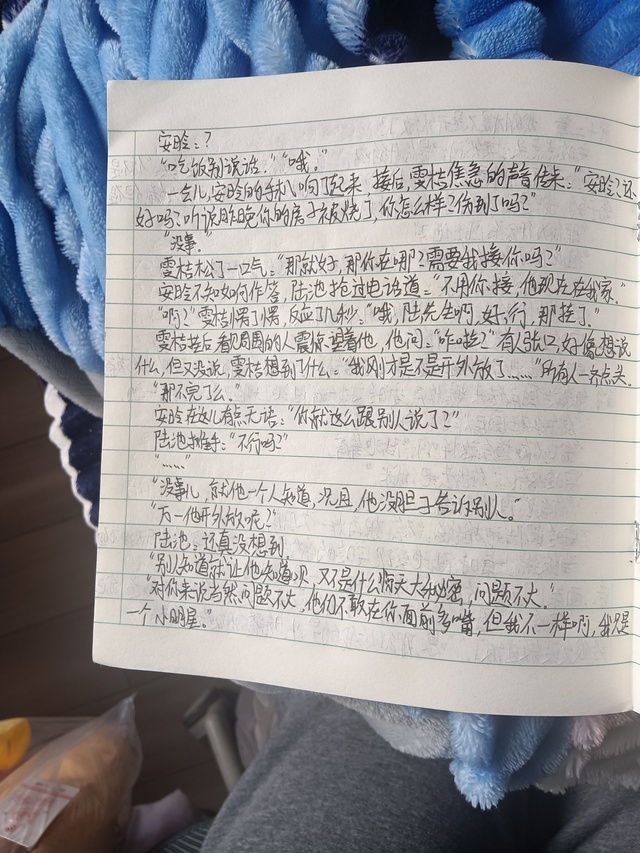 安晗：？
“吃饭别说话。”“哦。”
一会儿，安晗的手机响了起来 接后，雯桔焦急的声音传来：“安晗？还
好吗？听说昨晚你的房子被烧了，你怎么样？伤到了吗？”
“没事。”
雯桔松了一口气：“那就好，那你在哪？需要我接你吗？”
安晗不知如何作答，陆池抢过电话道：“不用你接，他现在在我家。”
“啊？”雯桔愣了愣，反应了几秒：“哦，陆先生啊，好，行，那挂了。”
雯桔挂后看见周围的人震惊望着他，他问：“咋啦？”有人张口，好像想说
什么，但又没说，雯桔想到了什么：“我刚才是不是开外放了……”所有人一齐点头。
“那不完了么。”
安晗在这儿有点无语：“你就这么跟别人说了？”
陆池摊手：“不行吗？”
“……”
“没事儿，就他一个人知道，况且，他没胆子告诉别人。”
“万一他开外放呢？”
陆池：还真没想到。
“别人知道就让他知道呗，又不是什么天大秘密，问题不大。”
“对你来说当然问题不大，他们不敢在你面前多嘴，但我不一样啊，我只是
一个小明星。”